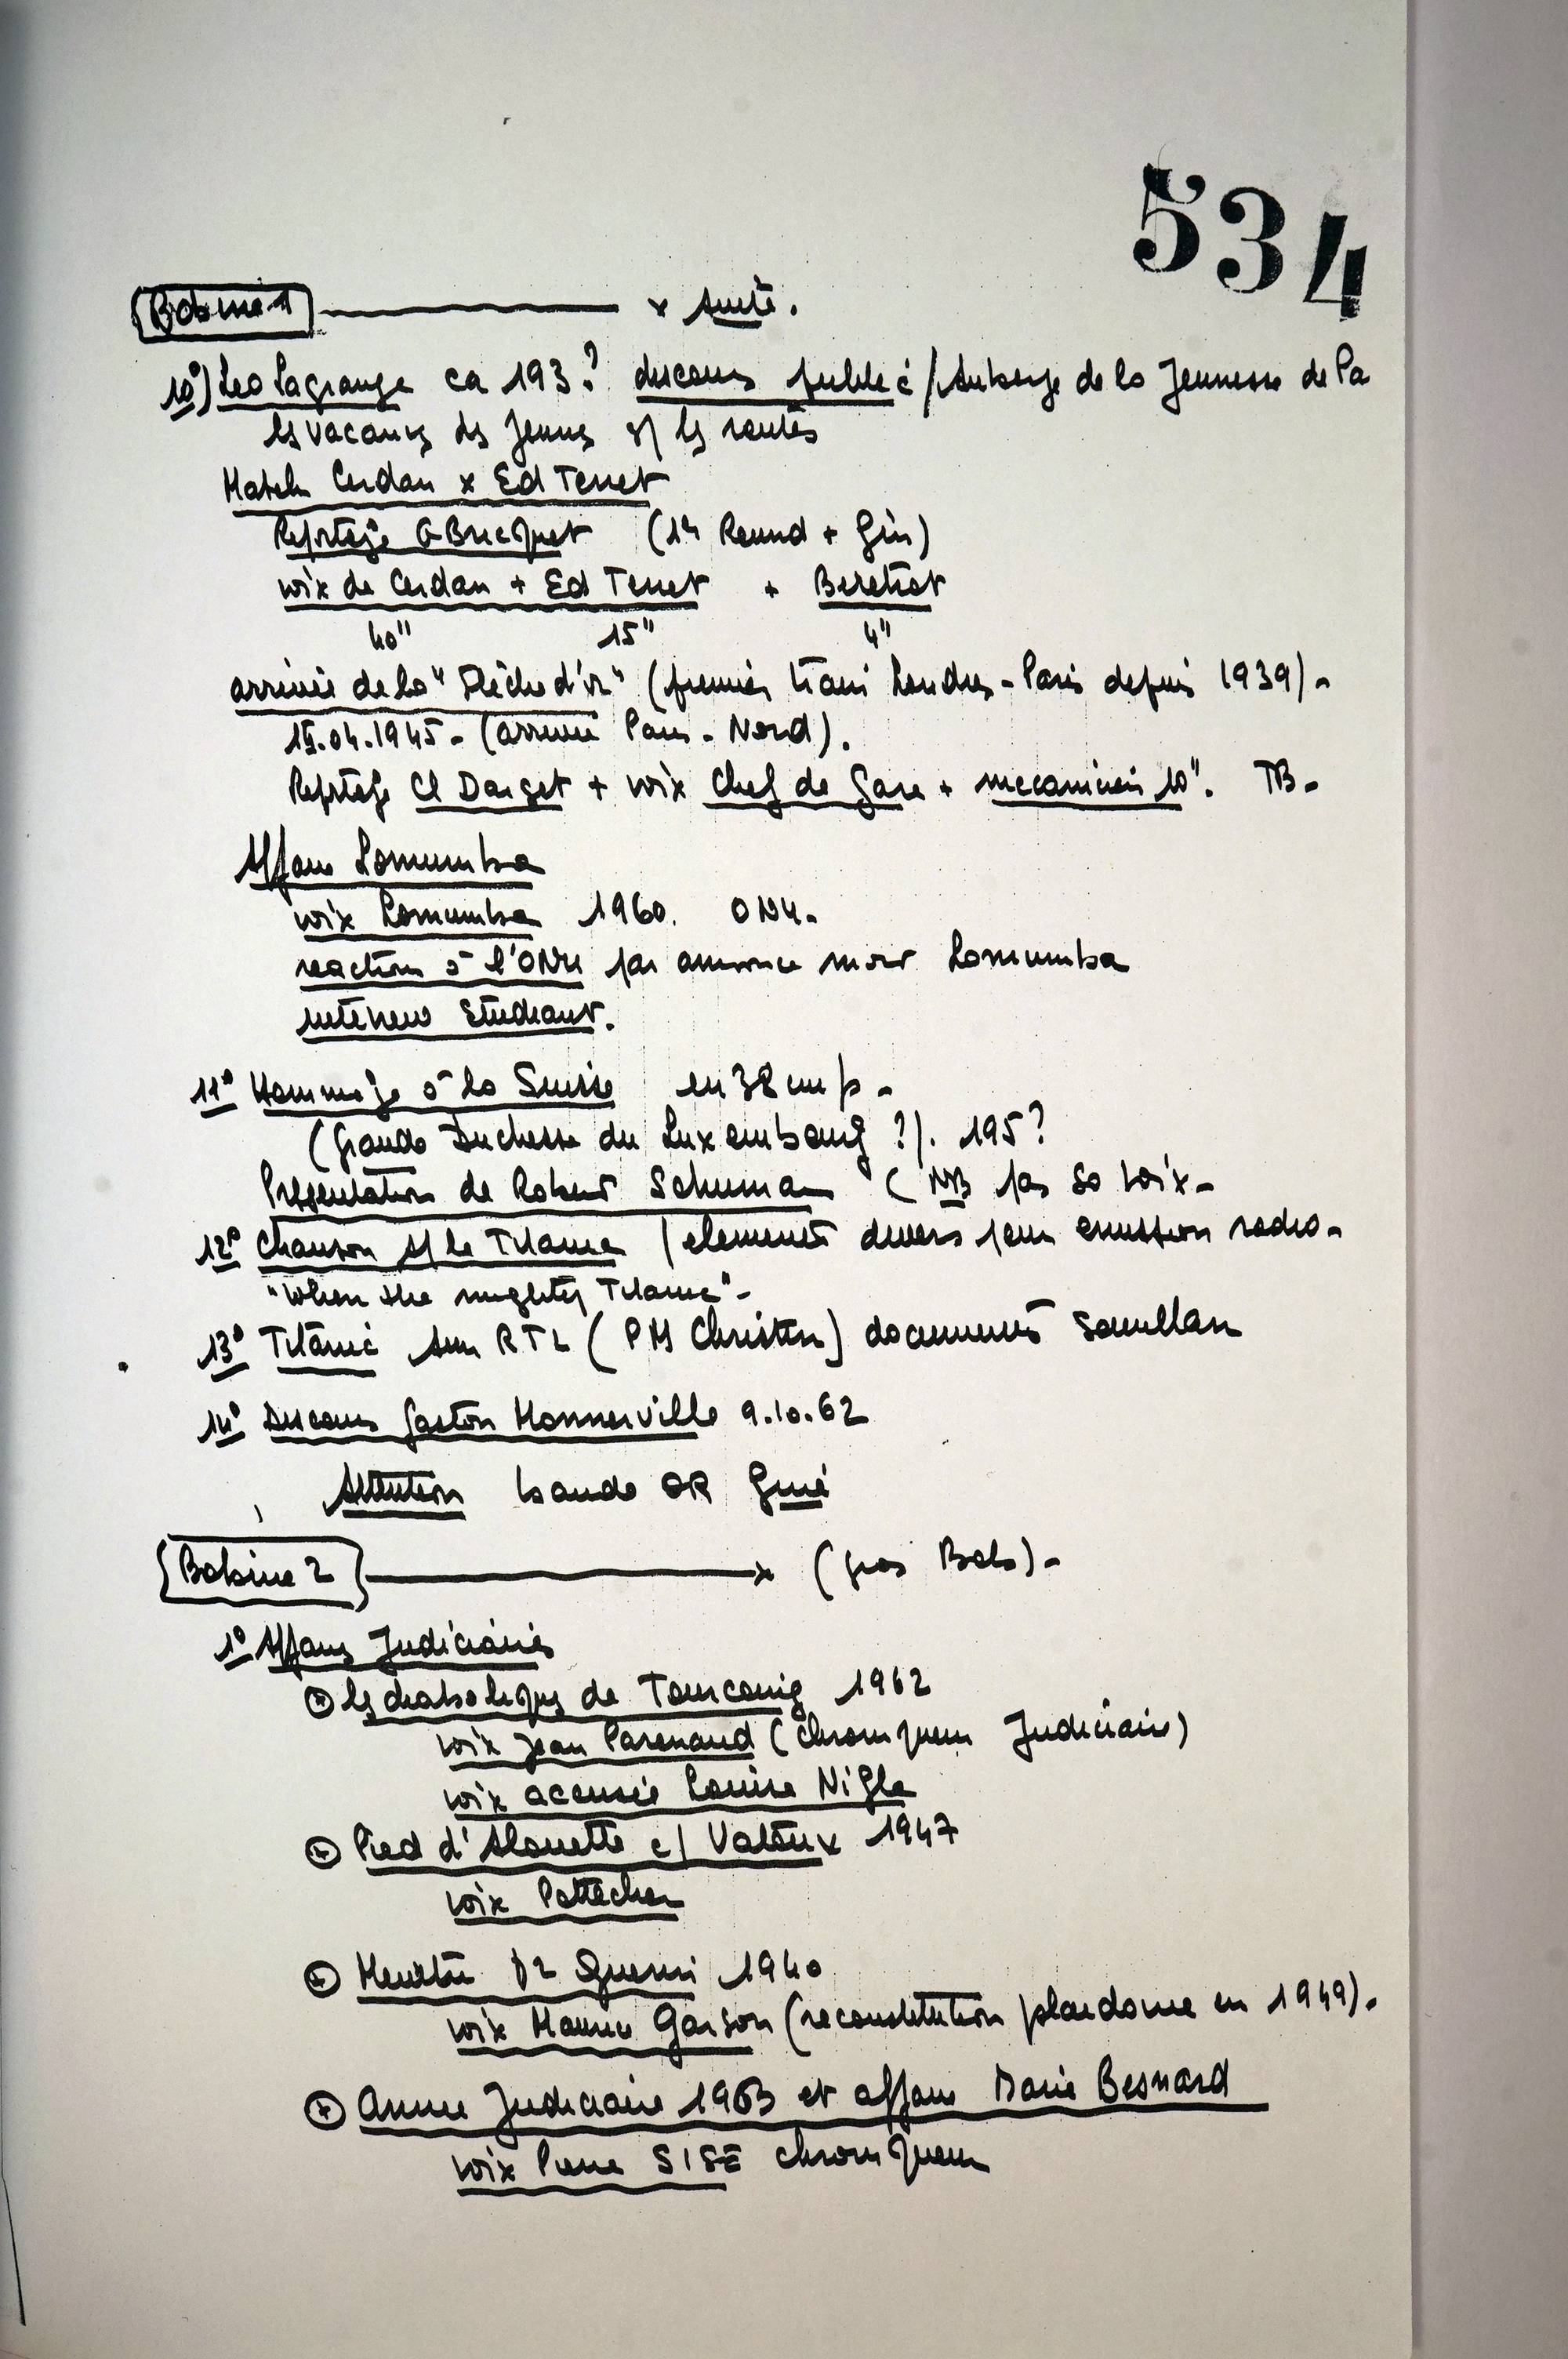 534
Bobine 1 x suite.
10°) Leo Lagrange ca 193? discours public à / Auberge de la Jeunesse de Pa
les vacances des Jeunes s/ les routes
Match Cerdan x Ed Tenet
Reportage G Bricquet (14 Round + Fin)
voix de Cerdan + Ed Tenet + Beretrot
40" 15" 4"
arrivée de la "Flèche d'or" (premier train Londres - Paris depuis 1939) -
15.04.1945 - (arrivée Paris - Nord).
Reportage Cl Darget + voix Chef de Gare + mecanicien 10". TB -
Affaire Lomumba
voix Lomumba 1960. ONU -
reaction à l'ONU par annonce mort Lomumba
interview Etudiant.
11° Hommage à la Suisse en 38 cm/s -
(Grande Duchesse du Luxembourg ?). 195?
Presentation de Robert Schuman (NB pas sa voix -
12° Chanson s/ le Titanic / elements divers pour emission radio -
"When the mighty Titanic" -
13° Titanic sur RTL (PM Christin) documents
14° Discours Gaston Monnerville 9.10.62
Attention bande OR
Bobine 2 x (gros Bob) -
1° Affaires Judiciaires
les diaboliques de Tourcoing 1962
voix Jean (chroniqueur Judiciaire)
voix accusée Louise Nigle
Pied d'Alouette c/ Valoux 1947
voix Pottecher
Meurtre Dr Guerin 1940
voix Maurice Garson (reconstitution plaidoirie en 1949) -
Année Judiciaire 1963 et affaire Marie Besnard
voix Pierre SISE chroniqueur